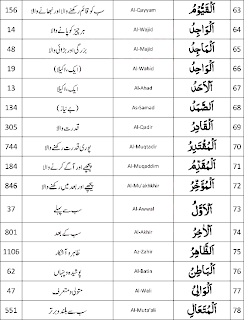 156 سب کو قائم رکھنے والا اور نبھانے والا Al-Qayyum اَلْقَيُّوْمُ 63
14 ہر چیز کو پانے والا Al-Wajid اَلْوَاجِدُ 64
48 بزرگی اور بڑائی والا Al-Majid اَلْمَاجِدُ 65
19 ایک، اکیلا Al-Wahid اَلْوَاحِدُ 66
13 ایک، اکیلا Al-Ahad اَلْأَحَدُ 67
134 بے نیاز As-Samad اَلصَّمَدُ 68
305 قدرت والا Al-Qadir اَلْقَادِرُ 69
744 پوری قدرت رکھنے والا Al-Muqtadir اَلْمُقْتَدِرُ 70
184 Al-Muqaddim اَلْمُقَدِّمُ 71
846 پیچھے اور بعد میں رکھنے والا Al-Mu'akhkhir اَلْمُؤَخِّرُ 72
37 سب سے پہلے Al-Awwal اَلْأَوَّلُ 73
801 سب کے بعد Al-Akhir اَلْآخِرُ 74
1106 ظاہر و آشکار Az-Zahir اَلظَّاهِرُ 75
62 پوشیدہ و پنہاں Al-Batin اَلْبَاطِنُ 76
47 متولی و متصرف Al-Wali اَلْوَالِيْ 77
551 سب سے بلند و برتر Al-Muta'ali اَلْمُتَعَالِ 78